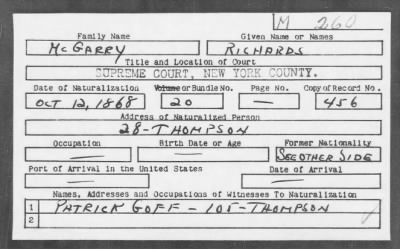 M 260
Family Name Given Name or Names
McGARRY RICHARDS
Title and Location of Court
SUPREME COURT, NEW YORK COUNTY.
Date of Naturalization Volume or Bundle No. Page No. Copy of Record No.
OCT 12, 1868 20 — 456
Address of Naturalized Person
28-THOMPSON
Occupation Birth Date or Age Former Nationality
— — SEE OTHER SIDE
Port of Arrival in the United States Date of Arrival
— —
Names, Addresses and Occupations of Witnesses To Naturalization
1 PATRICK GOFF - 105-THOMPSON
2